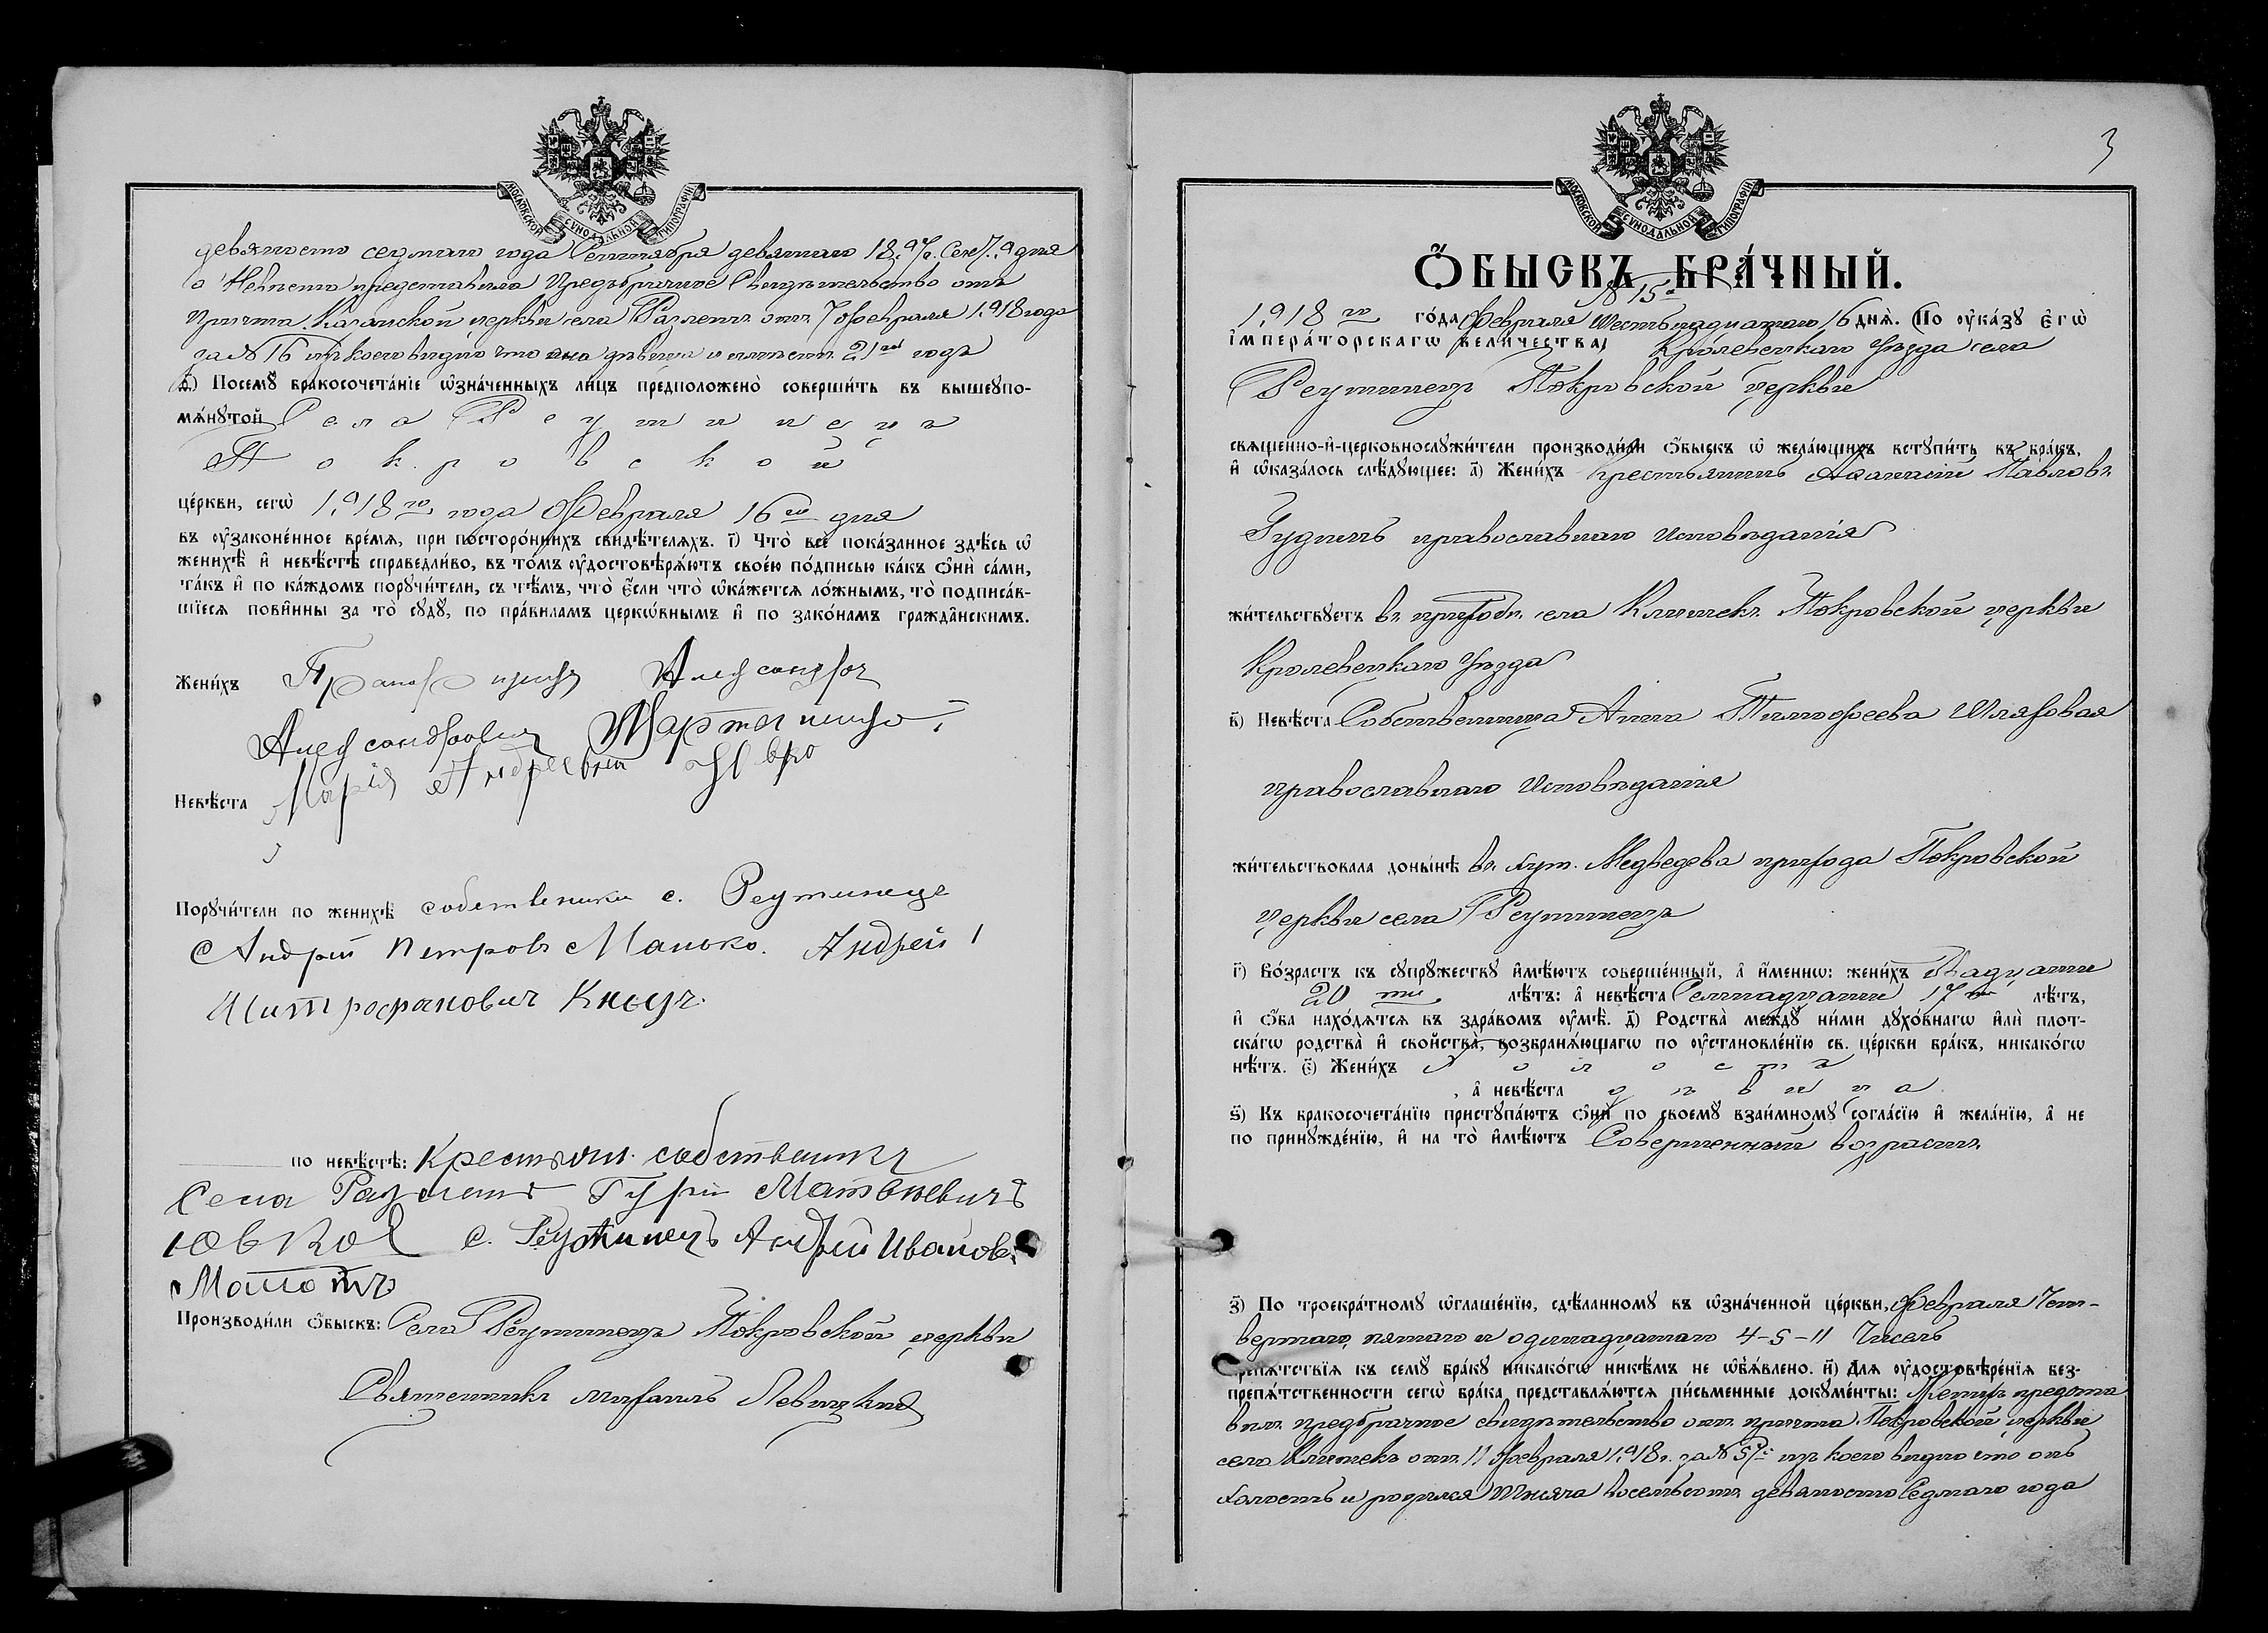 МОСКОВСКОЙ СУНОДАЛЬНОЙ ТИПОГРАФІИ
девяносто седмаго года Сентября девятаго 1897 г. Сент. 9 дня
а Невѣста представила Предбрачное Свидѣтельство отъ
Причта Казанской церкви села Разлетъ отъ 7 Февраля 1918 года
за № 16 изъ коего видно что она дѣвица и имѣетъ 21 годъ
ѳ) Посемꙋ бракосочетаніе ѡзначенныхъ лицъ предположено совершить въ вышеꙋпо-
мѧнꙋтой Села Реутинецъ
Покровской
церкви, сегѡ 1918 го года Февраля 16 го дня
въ ᲂузаконенное время, при постороннихъ свидѣтеляхъ. і) Что все показанное здѣсь ѡ
женихѣ и невѣстѣ справедливо, въ томъ ᲂудостовѣряютъ своею подписью какъ ѻни сами,
такъ и по каждомъ порꙋчители, съ тѣмъ, что если что ѡкажется ложнымъ, то подписав-
шіеся повинны за то сꙋдꙋ, по правиламъ церкѡвнымъ и по законамъ гражданскимъ.
Женихъ Прапорщикъ Александръ
Александровичъ
Невѣста Марія Андреевна
Порꙋчители по женихѣ собственики с. Реутинецъ
Андрій Петровъ Манько. Андрей
Митрофановичъ
по невѣстѣ: Крестьян. собственикъ
Села Разлетъ Гурій Матвѣевичъ
Ювко с. Реутинецъ Андрей Иванов.
Производили ѻбыскъ: Села Реутинецъ Покровской церкви
Священникъ Михаилъ Левицкій
МОСКОВСКОЙ СУНОДАЛЬНОЙ ТИПОГРАФІИ
3
ѺБЫСКЪ БРАЧНЫЙ.
№ 15
1918 го года Февраля Шестьнадцатаго 16 дня. По ᲂуказꙋ егѡ
імператорскагѡ величества, Кролевецкаго Уѣзда села
Реутинецъ Покровской Церкви
священно-и-церковнослꙋжители производили ѻбыскъ ѡ желающихъ встꙋпить въ бракъ,
и ѡказалось слѣдꙋющее: а) Женихъ Крестьянинъ Афанасій Павловъ
Гуднинъ православнаго исповѣданія
жительствꙋетъ въ приходѣ села Клишекъ Покровской церкви
Кролевецкаго Уѣзда
в) Невѣста Собственница Анна Тимофеева Шляховая
православнаго исповѣданія
жительствовала донынѣ въ хут. Медведева прихода Покровской
Церкви села Реутинецъ
г) Возрастъ къ сꙋпрꙋжествꙋ имѣютъ совершенный, а именнѡ: женихъ Двадцати
20 ти лѣтъ: а невѣста Семнадцати 17 ти лѣтъ,
и ѻба находятся въ здравомъ ᲂумѣ. д) Родства междꙋ ними дꙋховнагѡ или плот-
скагѡ родства и свойства, возбраняющагѡ по ᲂустановленію св. церкви бракъ, никакогѡ
нѣтъ. є) Женихъ холостъ
, а невѣста дѣвица
ѕ) Къ бракосочетанію пристꙋпаютъ ѻни по своемꙋ взаимномꙋ согласію и желанію, а не
по принꙋжденію, и на то имѣютъ Совершенный возрастъ.
з) По троекратномꙋ ѡглашенію, сдѣланномꙋ въ ѡзначенной церкви, Февраля Чет-
вертаго, пятаго и одинадцатаго 4-5-11 Чиселъ
препятствія къ семꙋ бракꙋ никакогѡ никѣмъ не ѡбъявлено. и) Для ᲂудостовѣренія без-
препятственности сегѡ брака представляются письменные докꙋменты: Женихъ предста
вилъ предбрачное свидѣтельство отъ причта Покровской церкви
села Клишекъ отъ 11 Февраля 1918 г. за № 57 изъ коего видно что онъ
холостъ и родился Тысяча восемьсотъ девяносто Седмаго года